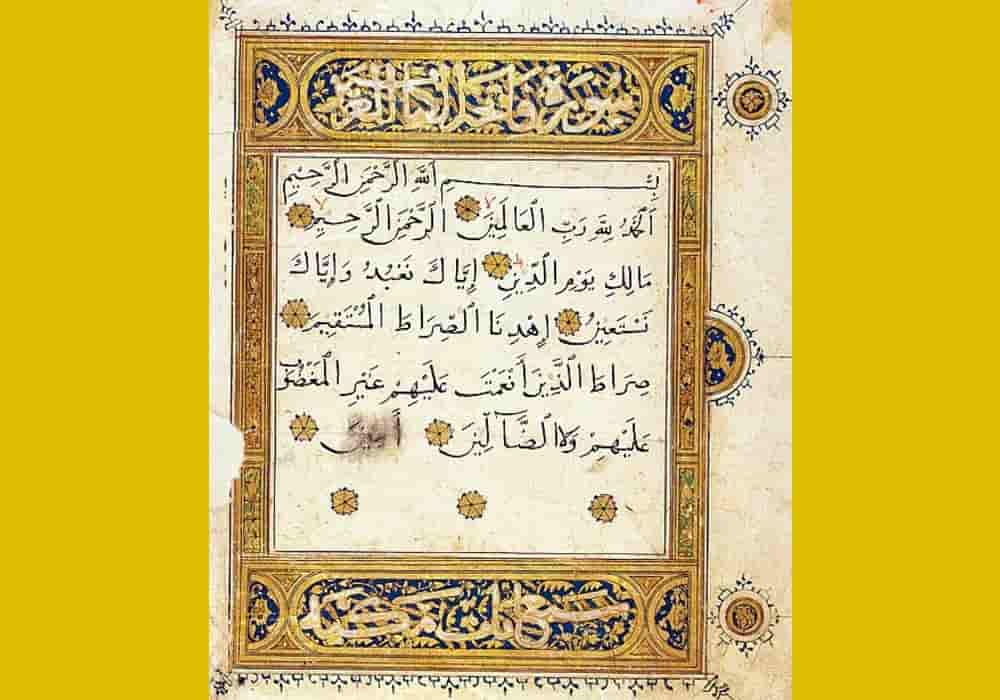 سورة فاتحة الكتاب
بِسْمِ اللَّهِ الرَّحْمَنِ الرَّحِيمِ
الْحَمْدُ لِلَّهِ رَبِّ الْعَالَمِينَ الرَّحْمَنِ الرَّحِيمِ
مَالِكِ يَوْمِ الدِّينِ إِيَّاكَ نَعْبُدُ وَإِيَّاكَ
نَسْتَعِينُ إِهْدِنَا الصِّرَاطَ الْمُسْتَقِيمَ
صِرَاطَ الَّذِينَ أَنْعَمْتَ عَلَيْهِمْ غَيْرِ الْمَغْضُوبِ
عَلَيْهِمْ وَلَا الضَّآلِّينَ أمين
سبع آيات مكية